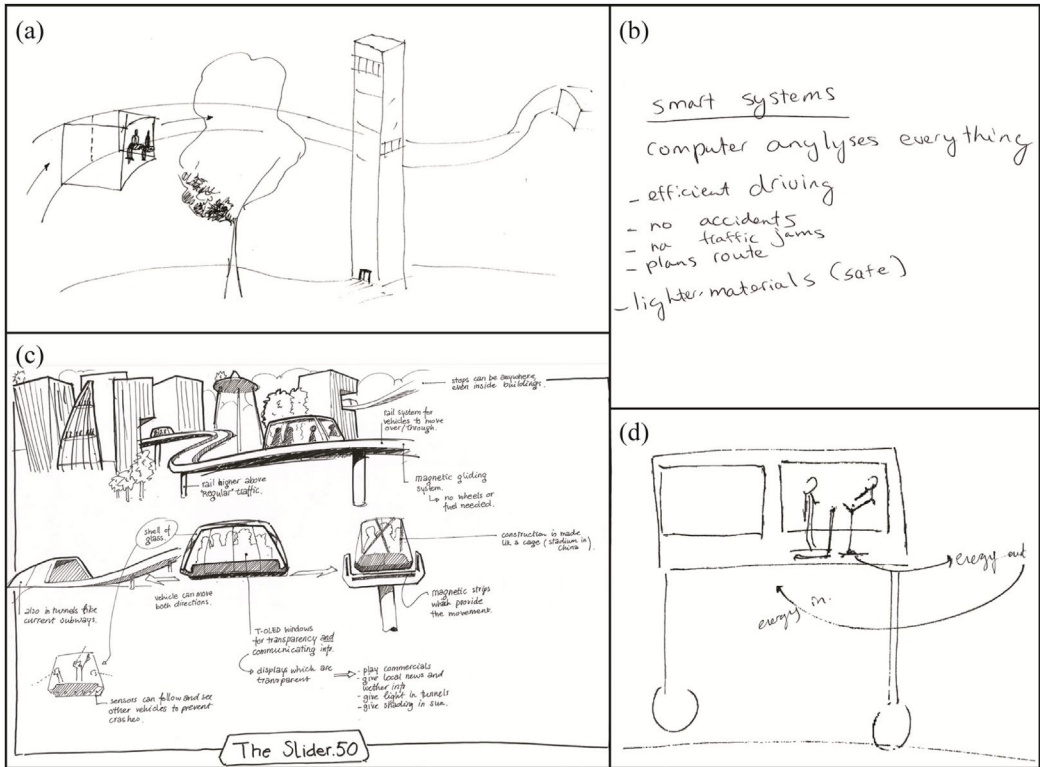 (a)
(b)
smart systems
computer anylyses everything
- efficient driving
- no accidents
- no traffic jams
- plans route
- lighter materials (safe)
(c)
stops can be anywhere
even inside buildings.
rail system for
vehicles to move
over/through.
rail higher above
"regular" traffic.
magnetic gliding
system.
↳ no wheels or
fuel needed.
shell of
glass.
construction is made
like a cage (stadium in
China).
also in tunnels like
current subways.
vehicle can move
both directions.
magnetic strips
which provide
the movement.
T-OLED windows
for transparency and
communicating info.
displays which are
transparent
- play commercials
- give local news and
wether info
- give light in tunnels
- give shading in sun.
sensors can follow and see
other vehicles to prevent
crashes.
The Slider.50
(d)
energy out
energy in